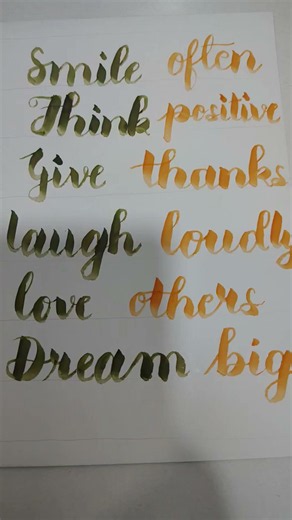 Smile often
Think positive
Give thanks
laugh loudly
love others
Dream big